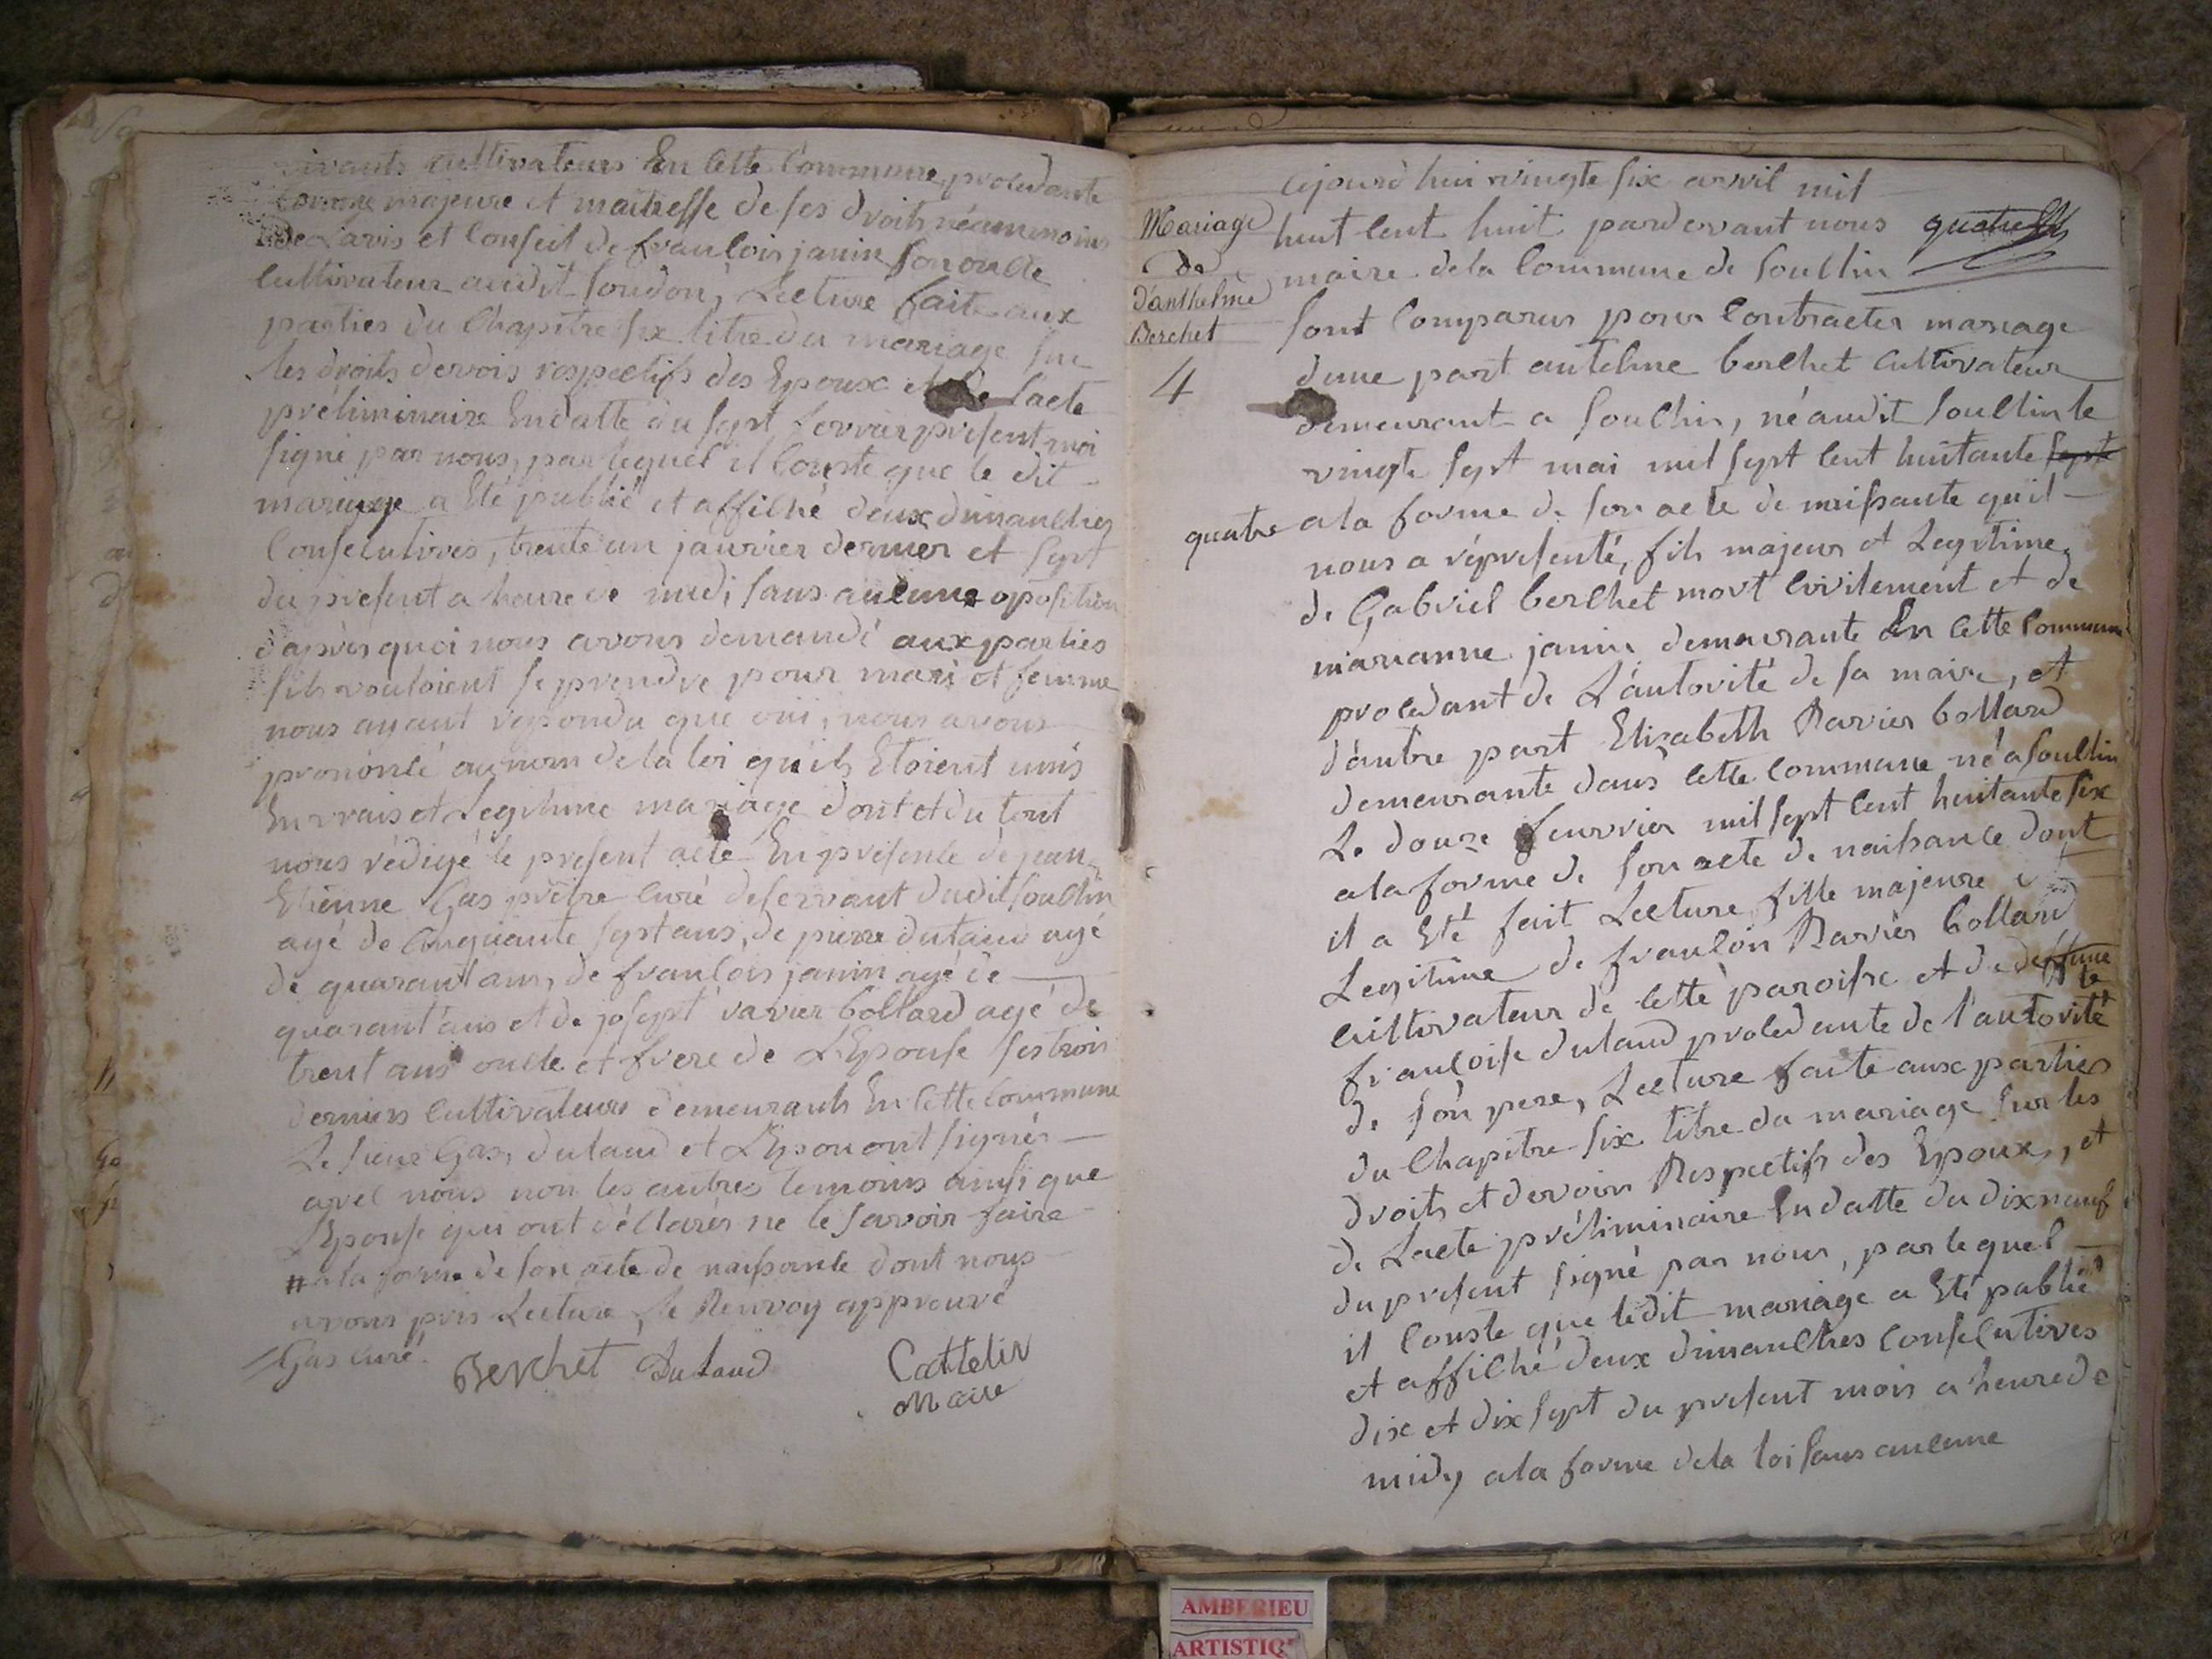 vivants cultivateurs En cette Commune procedante
comme majeure et maitresse de ses droits néanmoins
de Lavis et Conseil de francois janin son oncle
cultivateur audit soudon, Lecture faite aux
parties du Chapitre six titre du mariage sur
les droits devoirs respectifs des Epoux et de Lacte
préliminaire En datte du sept fevrier present moi
signé par nous, par lequel il Conste que le dit
mariage a Eté publié et affiché deux dimanches
Consecutives, trente un janvier dernier et sept
du present a heure de midi, sans aucune oposition
d'après quoi nous avons demandé aux parties
sils vouloient se prendre pour mari et femme
nous ayant repondu que oui, nous avons
prononcé au nom de la loi quils Etoient unis
En vrais et Legitime mariage dont et du tout
nous rédigé le present acte En presence de jean
Etienne Gas prêtre curé deservant dudit souclin
agé de Cinquante sept ans, de pierre dutaud agé
de quarant ans, de francois janin agé de
quarant'ans et de josept ravier bollard agé de
trent ans oncle et frere de L'Epouse ses trois
derniers Cultivateurs demeurants En Cette Commune
Le sieur Gas, dutaud et L'Epou ont signés
avec nous non les autres temoins ainsi que
L'Epouse qui ont déclarés ne le savoir faire
# a la forme de son acte de naissance dont nous
avons pris Lecture, le Renvoy approuvé
Gas curé. Berchet Dutaud Cattelin
Maire
Mariage
de
d'anthelme
Berchet
4
ajourd'hui vingte six avril mil
huit cent huit pardevant nous
maire de la Commune de souclin
sont Comparus pour Contracter mariage
dune part antelme berchet Cultivateur
demeurant a souclin, né audit souclin le
vingte sept mai mil sept cent huitante sept
quatre a la forme de son acte de naissante qu'il
nous a réprésenté, fils majeur et Legitime
de Gabriel berchet mort Civilement et de
marianne janin demeurante En cette Commune
procedant de L'autorité de sa maire, et
d'autre part Elizabeth Ravier bollard
demeurante dans cette Commune né a souclin
Le douze feuvrier mil sept cent huitante six
a la forme de son acte de naissance dont
il a Eté fait Lecture, fille majeure et
Legitime de francois Ravier bollard
Cultivateur de cette paroisse et de deffunte
francoise dutaud procedante de l'autorité
de son pere, Lecture faite aux parties
du Chapitre six titre du mariage sur les
droits et devoirs Respectifs des Epoux, et
de Lacte préliminaire En datte du dixneuf
du present signé par nous, par le quel
il Conste que ledit mariage a Eté publié
et affiché deux dimanches Consecutives
dix et dix sept du present mois a heure de
midy a la forme de la loi sans aucune
AMBERIEU
ARTISTIQ